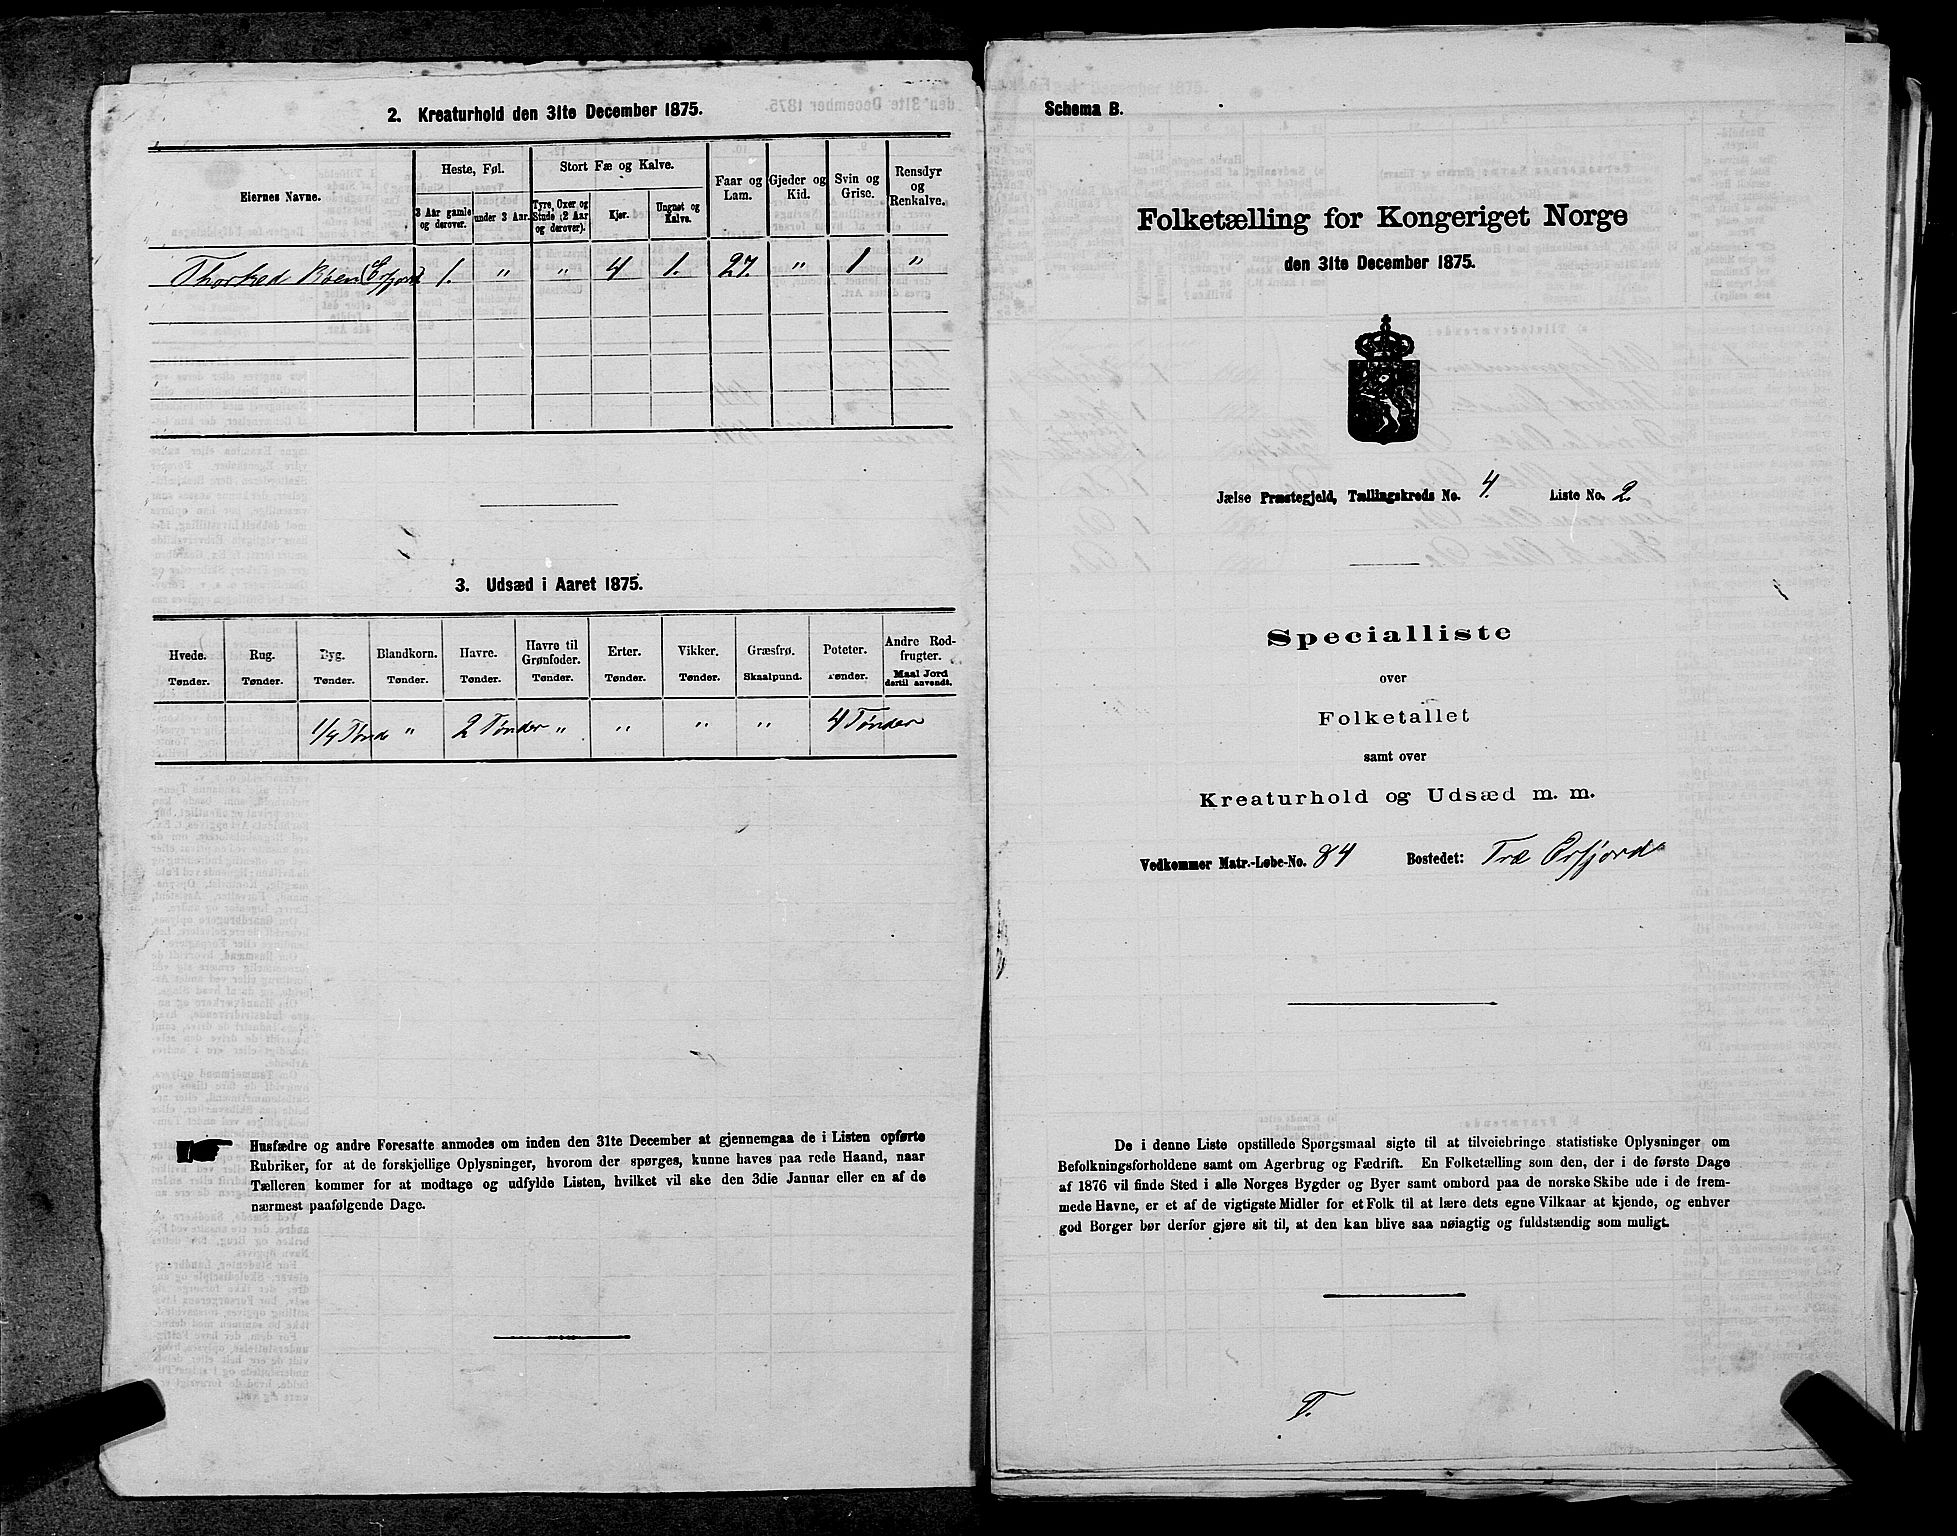 2. Kreaturhold den 31te December 1875.
Eiernes Navne.
Heste, Føl.
3 Aar gamle og derover.
under 3 Aar.
Stort Fæ og Kalve.
Tyre, Oxer og Stude (2 Aar og derover).
Kjør.
Ungnøt og Kalve.
Faar og Lam.
Gjeder og Kid.
Svin og Grise.
Rensdyr og Renkalve.
1. " " 4 1. 27. " 1 "
3. Udsæd i Aaret 1875.
Hvede. Rug. Byg. Blandkorn. Havre. Havre til Grønfoder. Erter. Vikker. Græsfrø. Poteter. Andre Rodfrugter.
Tønder. Tønder. Tønder. Tønder. Tønder. Tønder. Tønder. Tønder. Skaalpund. Tønder. Maal Jord dertil anvendt.
1/4 Tønde " 2 Tønder " " " " 4 Tønder
Husfædre og andre Foresatte anmodes om inden den 31te December at gjennemgaa de i Listen opførte
Rubriker, for at de forskjellige Oplysninger, hvorom der spørges, kunne haves paa rede Haand, naar
Tælleren kommer for at modtage og udfylde Listen, hvilket vil ske den 3die Januar eller en af de
nærmest paafølgende Dage.
Schema B.
Folketælling for Kongeriget Norge
den 31te December 1875.
Jælse Præstegjeld, Tællingskreds No. 4. Liste No. 2
Specialliste
over
Folketallet
samt over
Kreaturhold og Udsæd m. m.
Vedkommer Matr.-Løbe-No. 84 Bostedet: Træ Erfjord
De i denne Liste opstillede Spørgsmaal sigte til at tilveiebringe statistiske Oplysninger om
Befolkningsforholdene samt om Agerbrug og Fædrift. En Folketælling som den, der i de første Dage
af 1876 vil finde Sted i alle Norges Bygder og Byer samt ombord paa de norske Skibe ude i de frem-
mede Havne, er et af de vigtigste Midler for et Folk til at lære dets egne Vilkaar at kjende, og enhver
god Borger bør derfor gjøre sit til, at den kan blive saa nøiagtig og fuldstændig som muligt.
T.